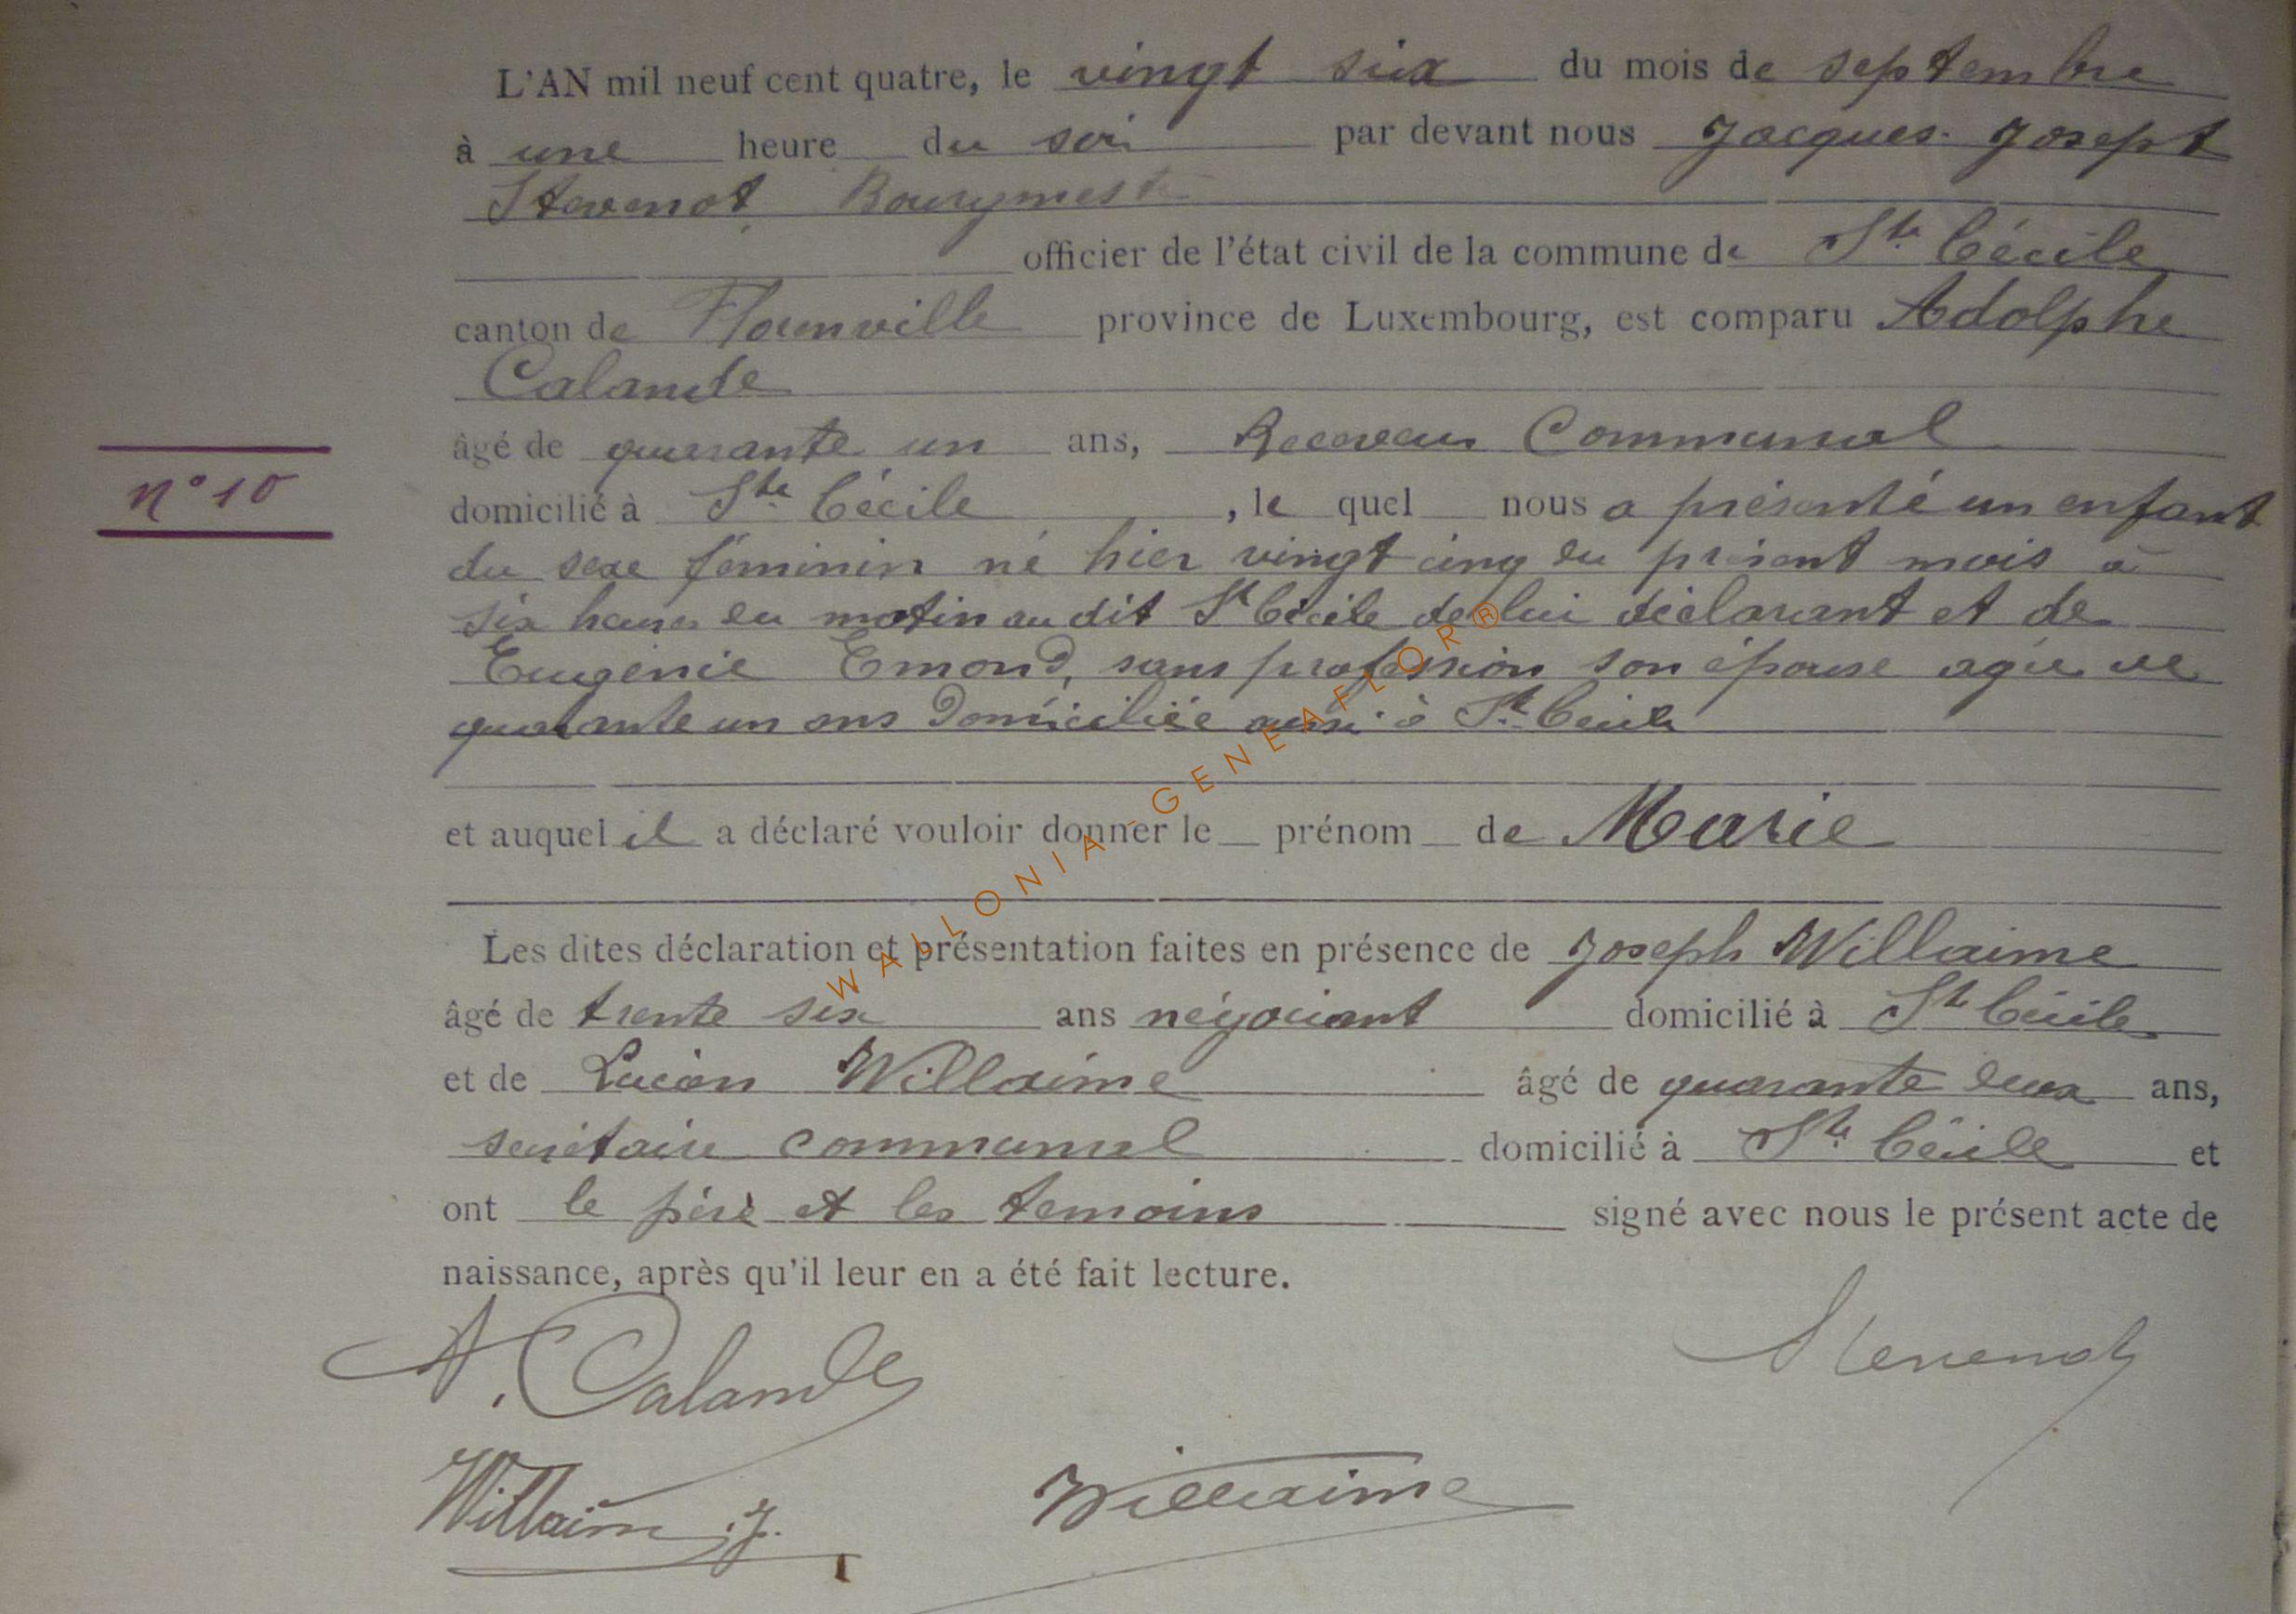 L'AN mil neuf cent quatre, le vingt six du mois de septembre
à une heure du soir par devant nous Jacques Josept
Stevenot, Bourgmestre
officier de l'état civil de la commune de Ste Cécile
canton de Florenville province de Luxembourg, est comparu Adolphe
Calande
âgé de quarante un ans, Receveur Communal
n° 10
domicilié à Ste Cécile , le quel nous a présenté un enfant
du sexe féminin né hier vingt cinq du présent mois à
six heures du matin au dit Ste Cécile de lui déclarant et de
Eugénie Emond, sans profession son épouse agée de
quarante un ans Domiciliée aussi à Ste Cécile
et auquel il a déclaré vouloir donner le prénom de Marie
Les dites déclaration et présentation faites en présence de Joseph Willaime
âgé de trente six ans négociant domicilié à Ste Cécile
et de Lucien Willaime âgé de quarante deux ans,
secrétaire communal domicilié à Ste Cécile et
ont le père et les temoins signé avec nous le présent acte de
naissance, après qu'il leur en a été fait lecture.
A. Calande Stevenot
Willaime J. Willaime
WALLONIA-GENEAFLOR®